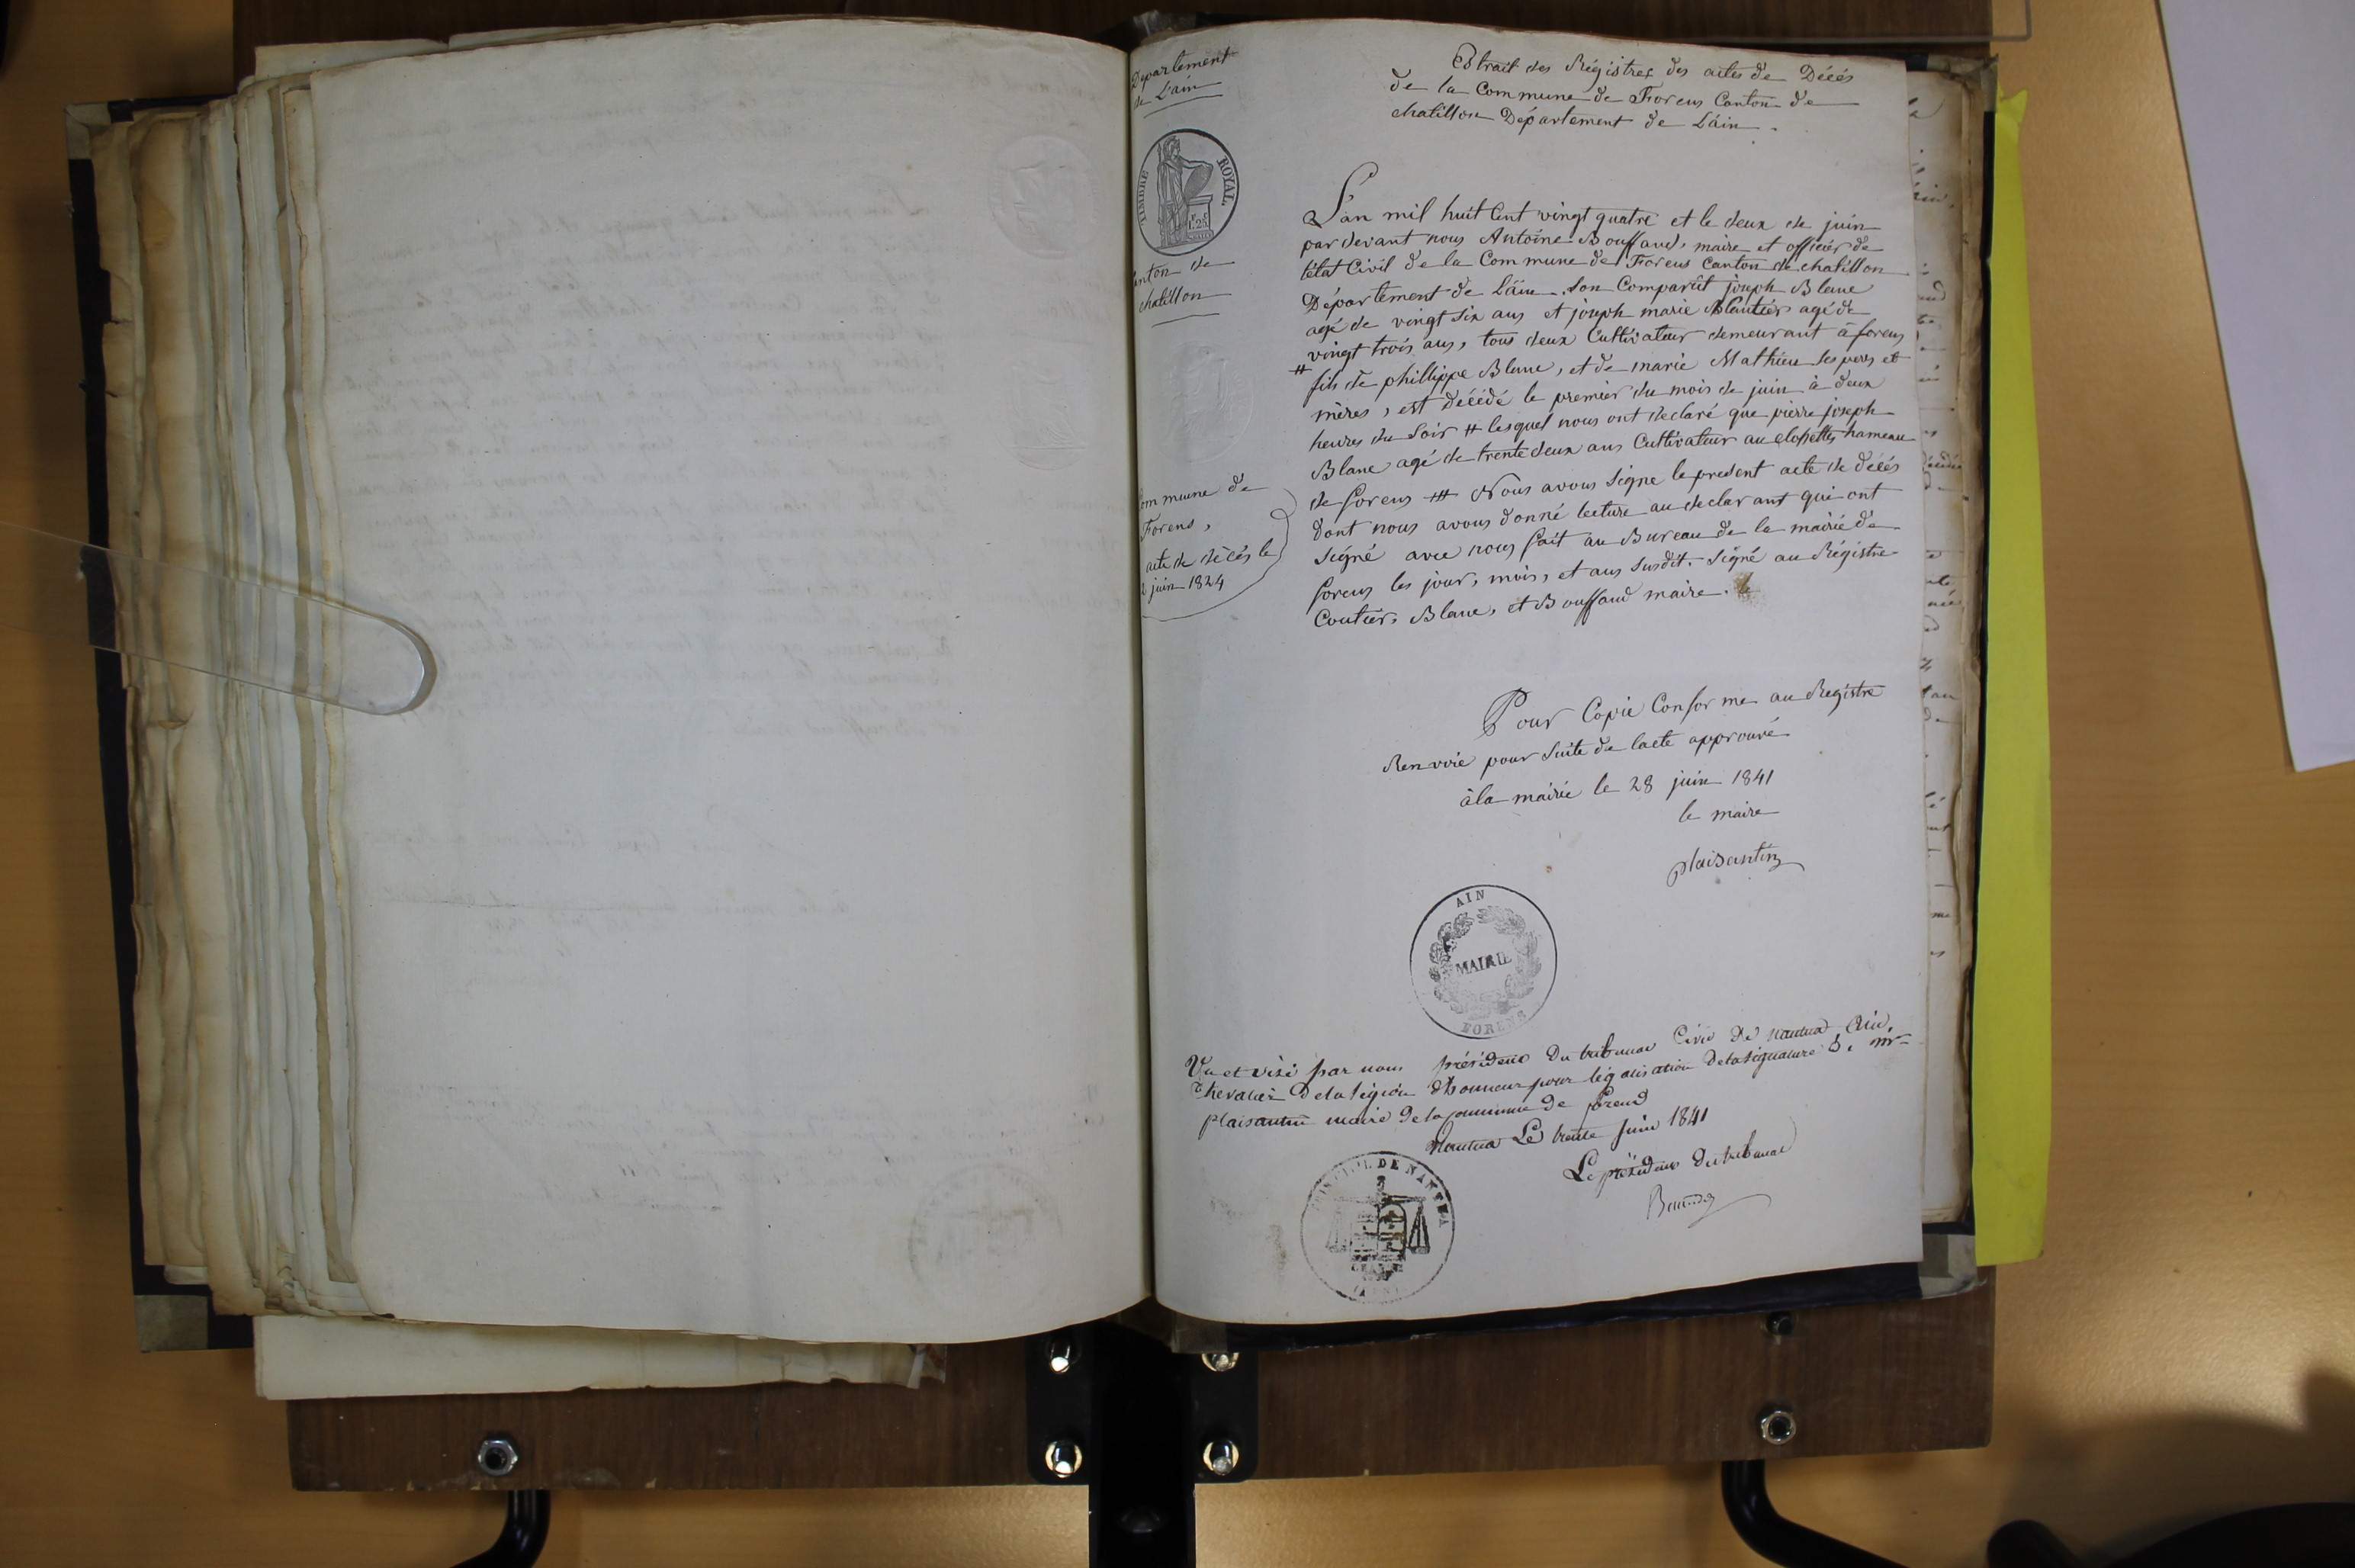 Département
de L'ain
TIMBRE ROYAL
1.25
anton de
chatillon
ommune de
Forens,
acte de décés le
2 juin 1824
Extrait des Régistres des actes de Décés
de la Commune de Forens Canton de
chatillon Département de L'ain.
L'an mil huit Cent vingt quatre et le deux de juin
par devant nous Antoine Bouffand, maire et officier de
l'état Civil de la Commune de Forens Canton de chatillon
Département de L'ain. Son Comparût joseph Blanc
agé de vingt six ans et joseph marie agé de
vingt trois ans, tous deux Cultivateur demeurant à forens
# fils de phillippe Blanc, et de marie Mathieu ses pers et
mères, est décédé le premier du mois de juin à deux
heures du Soir # lesquel nous ont declaré que pierre joseph
Blanc agé de trente deux ans Cultivateur au hameau
de forens # Nous avons signe le present acte de décés
dont nous avons donné lecture au declarant qui ont
signé avec nous fait au Bureau de la mairie de
forens les jour, mois, et ans susdit. Signé au Régistre
Coutier, Blanc, et Bouffand maire.
Pour Copie Conforme au Registre
Renvoie pour suite de lacte approuvé
à la mairie le 28 juin 1841
le maire
plaisantin
AIN
MAIRIE
FORENS
Vu et visé par nous président du tribunal Civil de nantua Ain,
Chevalier de la légion d'honneur pour légalisation de la signature de mr
plaisantin maire de la commune de forens
Nantua Le trente juin 1841
Le président du tribunal
CIVIL DE NANTUA
(AIN)